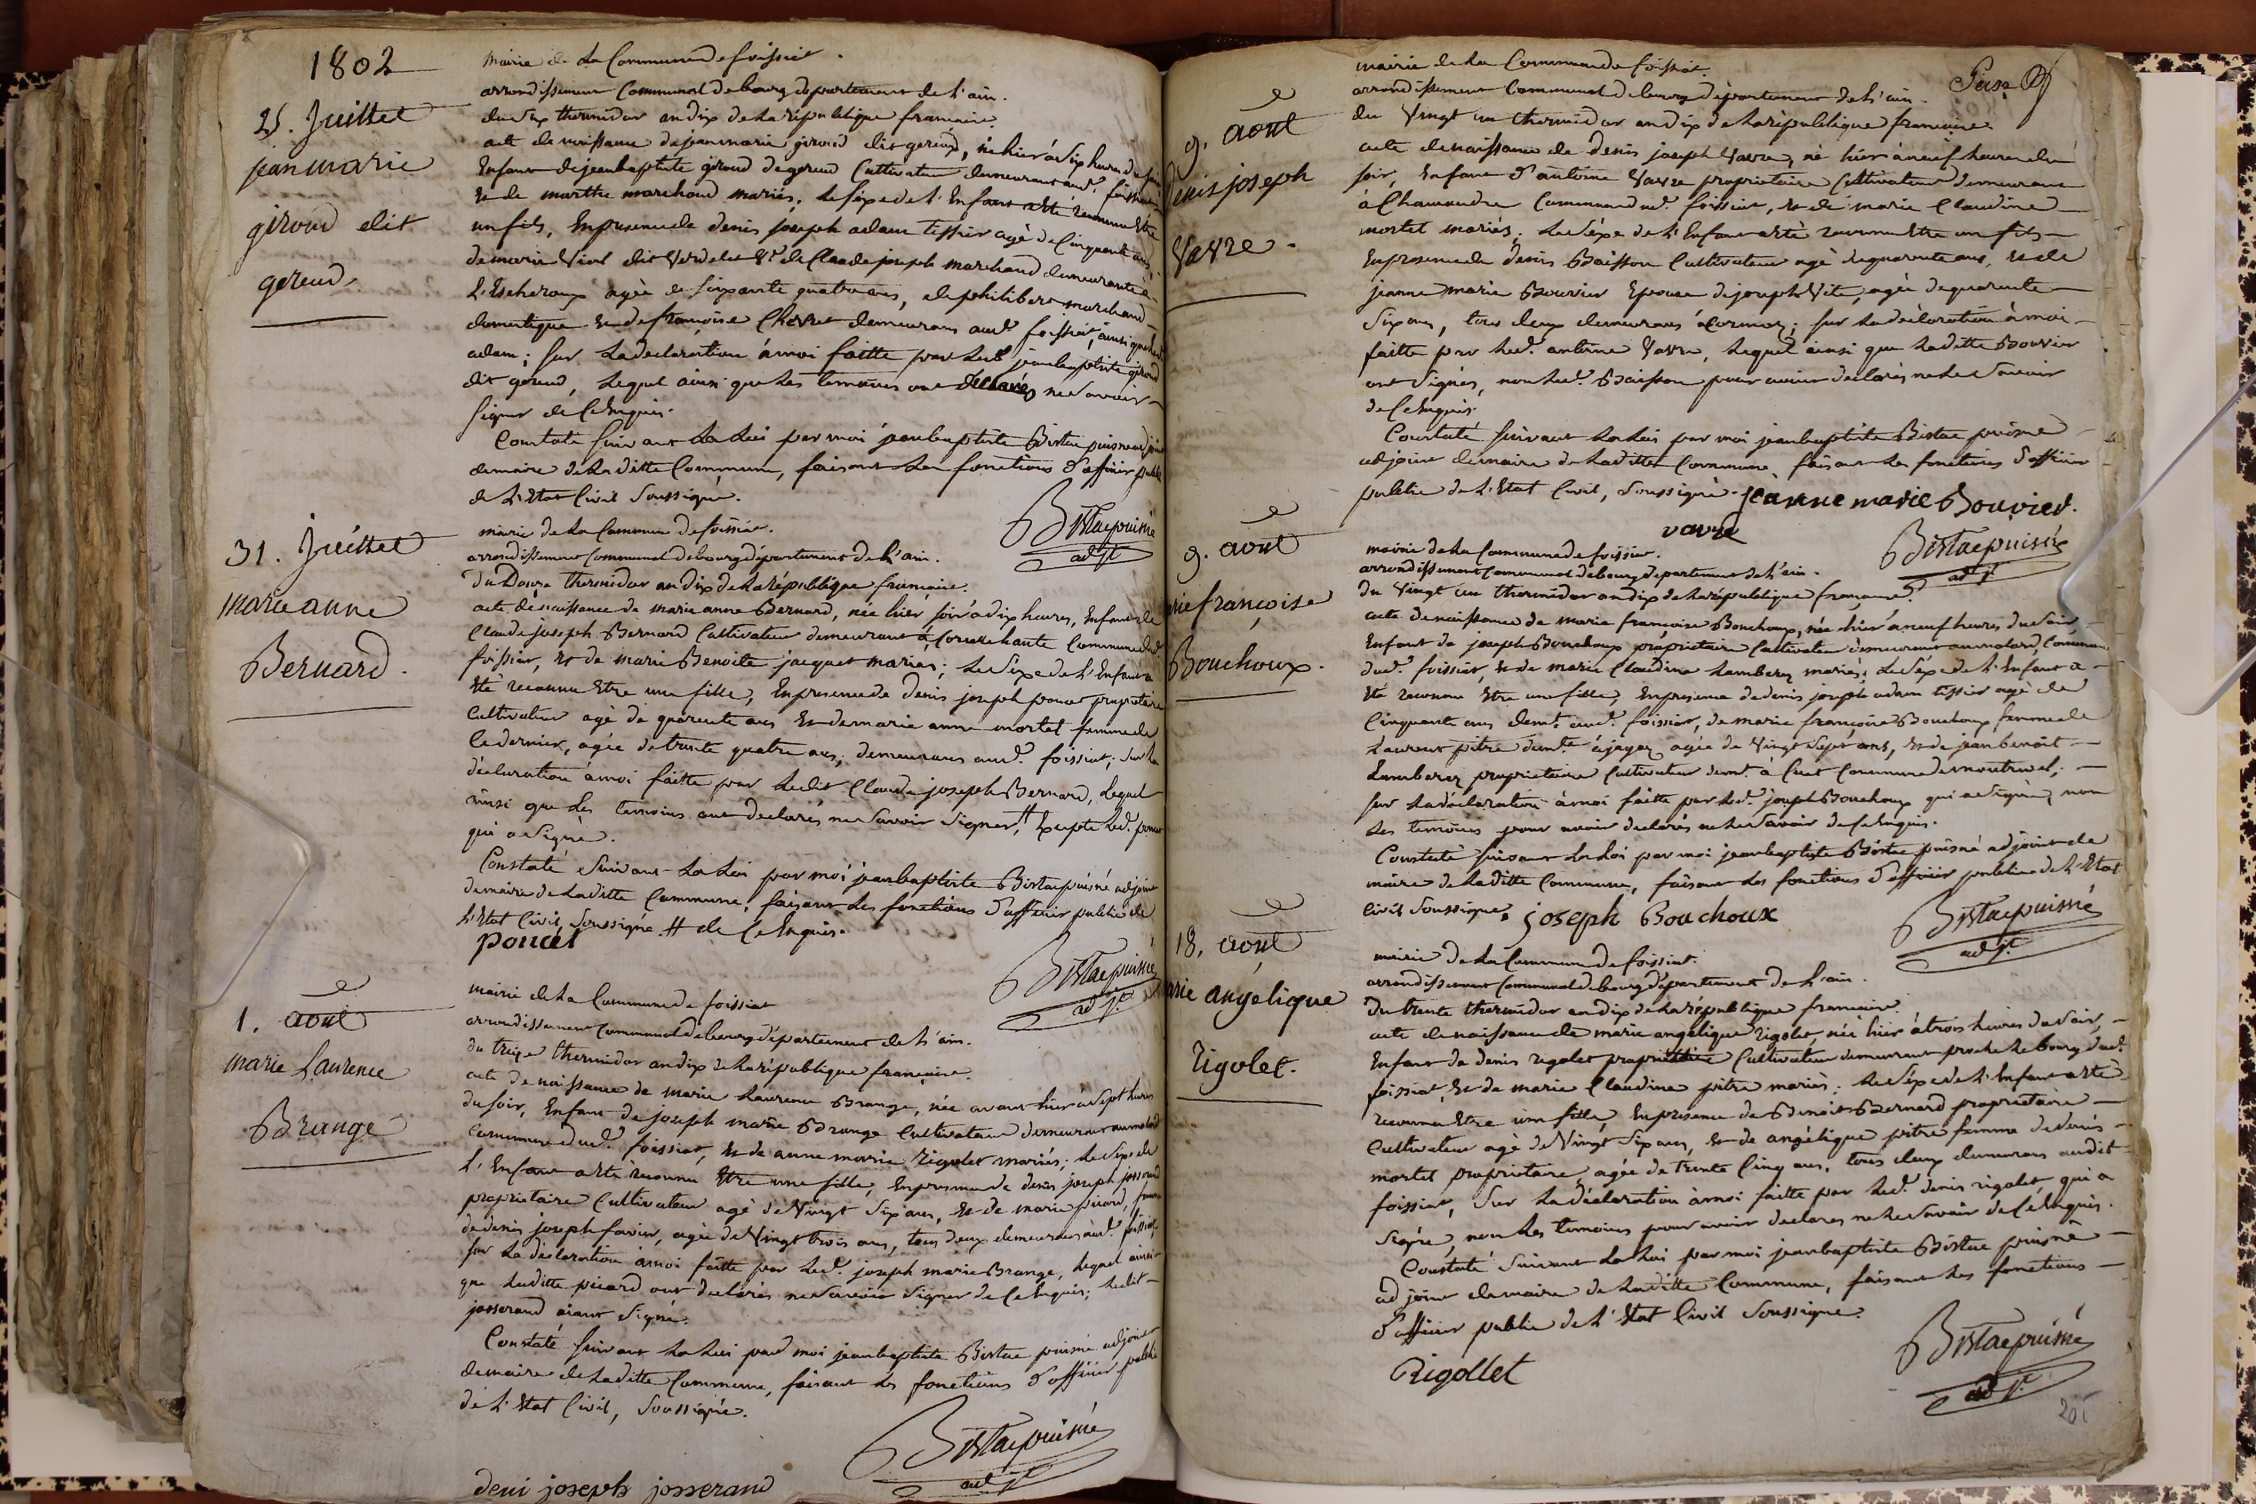 1802
25. Juillet
jean marie
giroud dit
gereud
mairie de La Commune de foissiat.
arrondissement Communal de bourg departement de L'ain.
du Six thermidor an dix de La république francaise
acte de naissance de jean marie giroud dit gereud, né hier à Six heures du
Enfant de jean baptiste giroud dit gereud Cultivateur demeurant aud.t foissiat
Et de marthe marchand mariés. Le Sexe de L'Enfant a Eté reconnu Etre
un fils, En presence de denis joseph adam tissier agé de Cinquante ans,
de marie Vial dit Verdelet V.e de Claude joseph marchand demeurante à
L'Escheroux agée de Soixante quatre ans, de philibert marchand
domestique Et de françoise Chevret demeurans aud.t foissiat, ainsi que led.
adam; Sur La declaration à moi faitte par Led. jean baptiste giroud
dit gereud, Lequel ainsi que Les temoins ont déclarés ne Savoir
Signer de Ce Enquis.
Constaté Suivant La Loi par moi jean baptiste Bistac puisné adjoint
de maire de La ditte Commune, faisant Les fonctions d'officier public
de L'Etat Civil Soussigné.
Bistac puisné
adj.t
31. Juillet
marie anne
Bernard.
mairie de La Commune de foissiat.
arrondissement Communal de bourg département de L'ain.
du Douze thermidor an dix de La république française.
acte de naissance de marie anne Bernard, née hier Soir à dix heures, Enfant de
Claude joseph Bernard Cultivateur demeurant à Cornechante Commune dud.
foissiat, Et de marie Benoite jacquet mariés; Le Sexe de L'Enfant a
Eté reconnu Etre une fille, En presence de denis joseph poncet propriétaire
Cultivateur agé de quarente ans Et de marie anne mortel femme de
Ce dernier, agée de trente quatre ans, demeurans aud.t foissiat; Sur La
déclaration à moi faitte par Ledit Claude joseph Bernard, Lequel
ainsi que Les temoins ont declarés ne Savoir Signer,# Excepté Led. poncet
qui a Signé.
Constaté Suivant La Loi par moi jean baptiste Bistac puisné adjoint
de maire de La ditte Commune, faisant Les fonctions d'officier public de
L'Etat Civil Soussigné. # de Ce Enquis.
poncet
Bistac puisné
adj.t
1. aout
marie Laurence
Brange
mairie de La Commune de foissiat
arrondissement Communal de bourg département de L'ain.
du treize thermidor an dix de La république française.
acte de naissance de marie Laurence Brange, née avant hier à Sept heures
du Soir, Enfant de joseph marie Brange Cultivateur demeurant au molard
Commune dud.t foissiat, Et de anne marie rigolet mariés. Le Sexe de
L'Enfant a Eté reconnu Etre une fille, En presence de denis joseph josserand
propriétaire Cultivateur agé de Vingt Six ans, Et de marie picard, femme
de denis joseph favier, agée de Vingt trois ans, tous deux demeurans aud.t foissiat,
Sur La déclaration à moi faitte par Led.t joseph marie Brange, Lequel ainsi
que Laditte picard ont declarés ne Savoir Signer de Ce Enquis; Ledit
josserand aiant Signé.
Constaté Suivant La Loi par moi jean baptiste Bistac puisné adjoint
de maire de La ditte Commune, faisant Les fonctions d'officier public
de L'Etat Civil, Soussigné.
Bistac puisné
adj.t
deni joseph josserand
9. aout
denis joseph
Vavre.
mairie de La Commune de foissiat.
arrondissement Communal de bourg département de L'ain.
du Vingt un thermidor an dix de La république française.
acte de naissance de denis joseph Vavre, né hier à neuf heures du
Soir, Enfant d'antoine Vavre propriétaire Cultivateur demeurant
à Chamandre Commune dud.t foissiat, Et de marie Claudine
mortel mariés. Le Séxe de L'Enfant a Eté reconnu Etre un fils
En presence de denis Baisson Cultivateur agé de quarente ans, Et de
jeanne marie Bouvier Epouse de joseph Vite, agée de quarente
Six ans, tous deux demeurans à Cormoz; Sur La déclaration à moi
faitte par Led.t antoine Vavre, Lequel ainsi que La ditte Bouvier
ont Signés, non Led.t Baisson pour avoir declarés ne Le Savoir
de Ce Enquis.
Constaté Suivant La Loi par moi jean baptiste Bistac puisné
adjoint de maire de La ditte Commune, faisant Les fonctions d'officier
public de L'Etat Civil, Soussigné. jeanne marie Bouvier.
vavre
Bistac puisné
adj.t
9. aout
françoise
Bouchoux.
mairie de La Commune de foissiat.
arrondissement Communal de bourg département de L'ain.
du Vingt un thermidor an dix de La république française.
acte de naissance de marie françoise Bouchoux, née hier à neuf heures du Soir,
Enfant de joseph Bouchoux propriétaire Cultivateur demeurant au molard, Commune
dud.t foissiat, Et de marie Claudine Lamberey mariés. Le Séxe de L'Enfant a
Eté reconnu Etre une fille, En presence de denis joseph adam tissier agé de
Cinquante ans dem.t aud.t foissiat, de marie françoise Bouchoux femme de
Laurent pitre dem.te à jayat agée de Vingt Sept ans, Et de jean benoit
Lamberey propriétaire Cultivateur dem.t à Cuet Commune de montrevel;
Sur La déclaration à moi faitte par Led.t joseph Bouchoux qui a Signé, non
Les temoins pour avoir declarés ne Le Savoir de Ce Enquis.
Constaté Suivant La Loi par moi jean baptiste Bistac puisné adjoint de
maire de La ditte Commune, faisant Les fonctions d'officier public de L'Etat
Civil Soussigné. joseph Bouchoux
Bistac puisné
adj.t
18. aout
angelique
rigolet.
mairie de La Commune de foissiat.
arrondissement Communal de bourg département de L'ain.
du trente thermidor an dix de La république française.
acte de naissance de marie angélique rigolet, née hier à trois heures du Soir,
Enfant de denis rigolet propriétaire Cultivateur demeurant proche Le bourg dud.t
foissiat, Et de marie Claudine pitre mariés. Le Séxe de L'Enfant a Eté
reconnu Etre une fille, En presence de Benoit Bernard propriétaire
Cultivateur agé de Vingt Six ans, Et de angélique pitre femme de denis
mortel propriétaire, agée de trente Cinq ans, tous deux demeurans audit
foissiat, Sur La déclaration à moi faitte par Led.t denis rigolet, qui a
Signé, non Les temoins pour avoir declarés ne Le Savoir de Ce Enquis.
Constaté Suivant La Loi par moi jean baptiste Bistac puisné
adjoint de maire de La ditte Commune, faisant Les fonctions
d'officier public de L'Etat Civil Soussigné.
Bistac puisné
adj.t
Rigollet